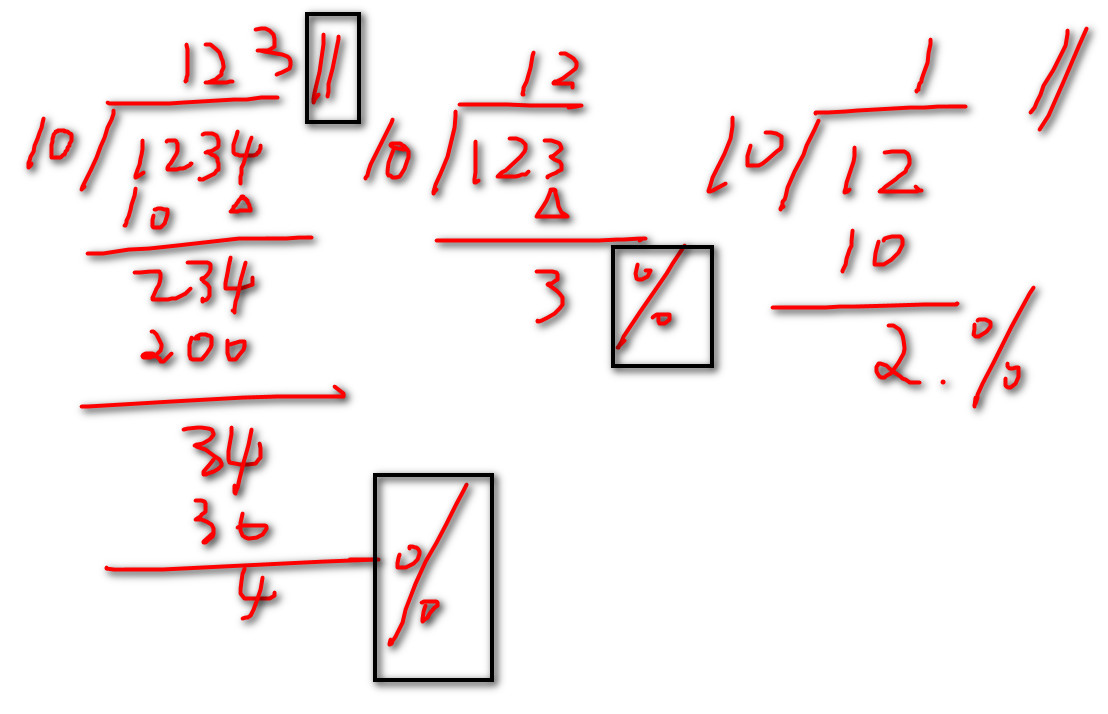 123 //
10 1234
10
234
200
34
30
4 %
12
10 123
3 %
1 //
10 12
10
2. %